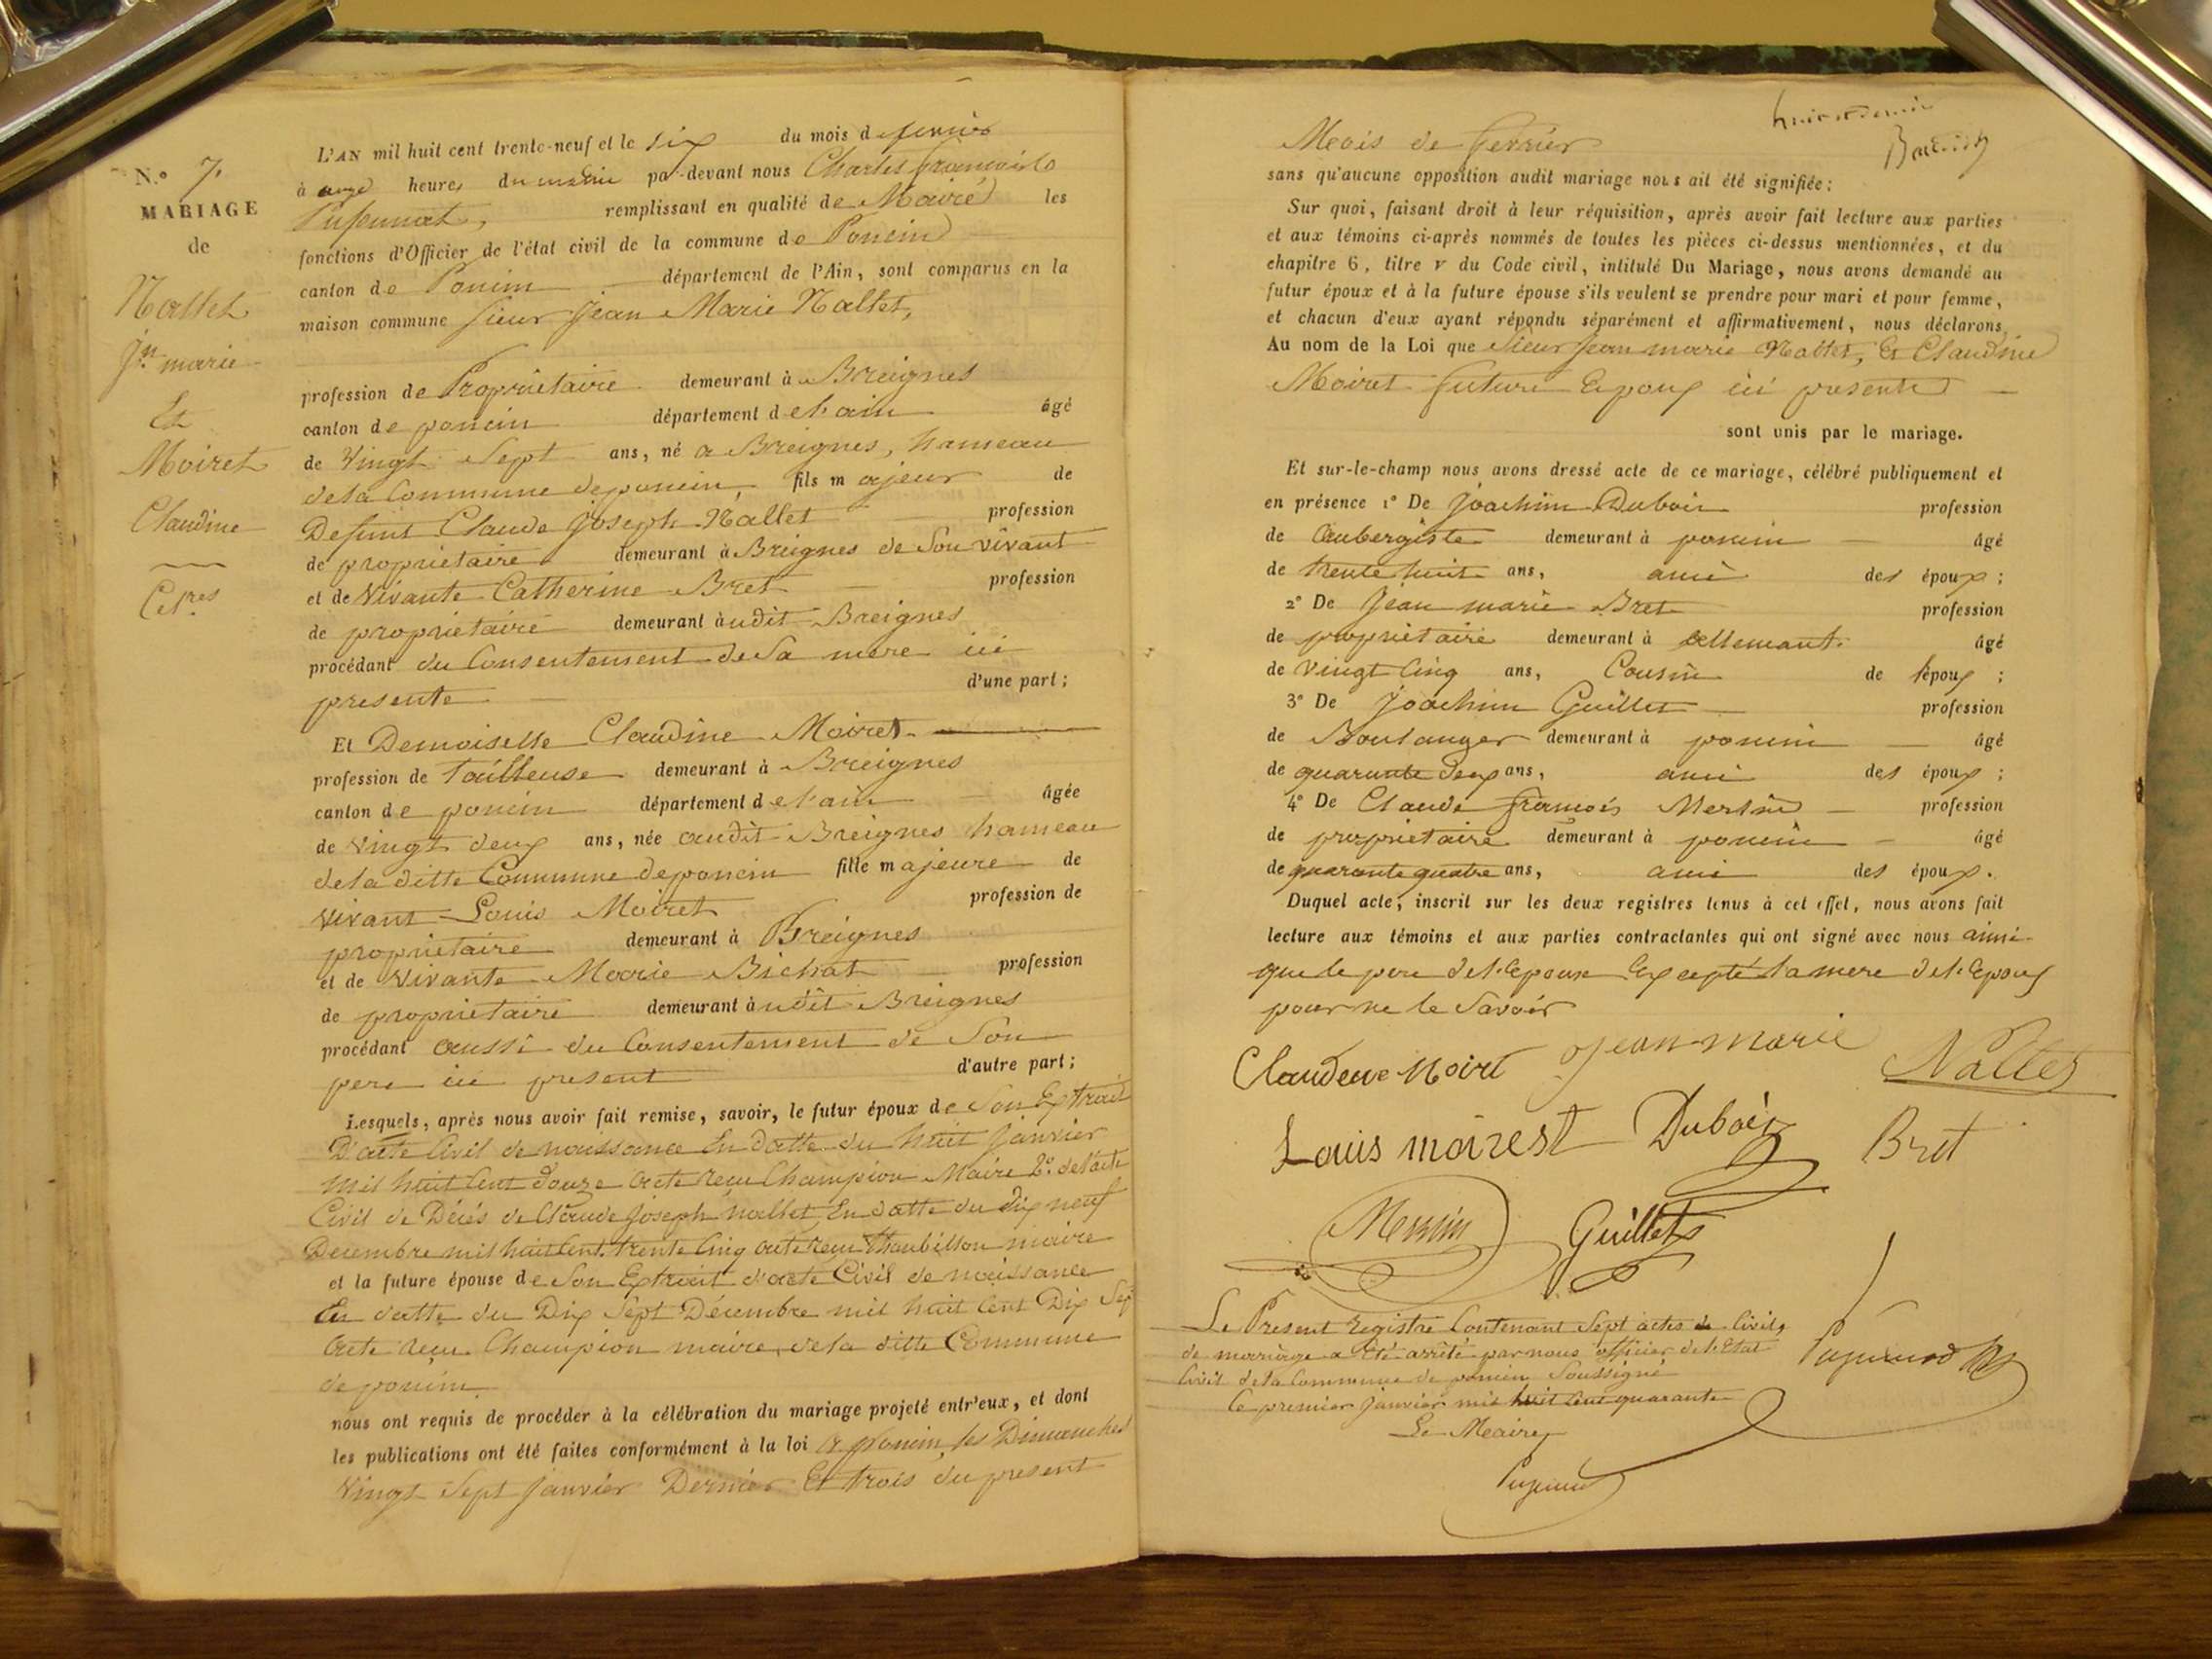 N.o 7.
MARIAGE
de
Nallet
Jn. marie
Et
Moiret
Claudine
Cel.res
L'AN mil huit cent trente-neuf et le six du mois de fevrier
à onze heures du matin par-devant nous Charles françois
remplissant en qualité de Maire les
fonctions d'Officier de l'état civil de la commune de Poncin
canton de Poncin département de l'Ain, sont comparus en la
maison commune Sieur Jean Marie Nallet,
profession de Propriétaire demeurant à Breignes
canton de poncin département de l'ain âgé
de Vingt Sept ans, né a Breignes, hameau
de la Commune de poncin, fils majeur de
Defunt Claude Joseph Nallet profession
de propriétaire demeurant à Breignes de Son vivant
et de Vivante Catherine Bret profession
de propriétaire demeurant àudit Breignes
procédant du Consentement de Sa mere ici
presente d'une part;
Et Demoiselle Claudine Moiret
profession de tailleuse demeurant à Breignes
canton de poncin département de l'ain âgée
de Vingt deux ans, née audit Breignes hameau
de la ditte Commune de poncin fille majeure de
vivant Louis Moiret profession de
propriétaire demeurant à Breignes
et de Vivante Marie Bichat profession
de propriétaire demeurant àudit Breignes
procédant aussi du Consentement de Son
pere ici present d'autre part;
Lesquels, après nous avoir fait remise, savoir, le futur époux de Son Extrait
D'acte Civil de naissance En datte du huit Janvier
mil huit Cent douze acte reçu Champion Maire 2.o de l'acte
Civil de Décés de Claude Joseph nallet, En datte du dix neuf
Decembre mil huit Cent trente Cinq acte reçu maire
et la future épouse de Son Extrait d'acte Civil de naissance
En datte du Dix Sept Décembre mil huit Cent Dix Sept
acte reçu Champion maire, de la ditte Commune
de poncin
nous ont requis de procéder à la célébration du mariage projeté entr'eux, et dont
les publications ont été faites conformément à la loi a poncin, les Dimanches
Vingt Sept Janvier Dernier Et trois du present
Mois de fevrier
sans qu'aucune opposition audit mariage nous ait été signifiée;
Sur quoi, faisant droit à leur réquisition, après avoir fait lecture aux parties
et aux témoins ci-après nommés de toutes les pièces ci-dessus mentionnées, et du
chapitre 6, titre V du Code civil, intitulé Du Mariage, nous avons demandé au
futur époux et à la future épouse s'ils veulent se prendre pour mari et pour femme,
et chacun d'eux ayant répondu séparément et affirmativement, nous déclarons,
Au nom de la Loi que Sieur Jean marie Nallet, Et Claudine
Moiret future Epoux ici presente
sont unis par le mariage.
Et sur-le-champ nous avons dressé acte de ce mariage, célébré publiquement et
en présence 1o De Joachim Dubois profession
de Aubergiste demeurant à poncin âgé
de trente huit ans, ami des époux;
2o De Jean marie Bret profession
de propriétaire demeurant à allemant. âgé
de Vingt Cinq ans, Cousin de l'époux;
3o De Joachim Guillet profession
de Boulanger demeurant à poncin âgé
de quarante deux ans, ami des époux;
4o De Claude françois profession
de propriétaire demeurant à poncin âgé
de quarante quatre ans, ami des époux.
Duquel acte, inscrit sur les deux registres tenus à cet effet, nous avons fait
lecture aux témoins et aux parties contractantes qui ont signé avec nous ainsi
que le pere de l'epouse Excepté la mere de l'Epoux
pour ne le Savoir
Jean marie Nallet
Louis moirest Dubois Bret
Guillet
Le Present registre Contenant Sept actes Civils
de mariage a été arrêté par nous officier de l'Etat
Civil de la Commune de poncin Soussigné
Ce premier Janvier mil huit Cent quarante
Le Maire